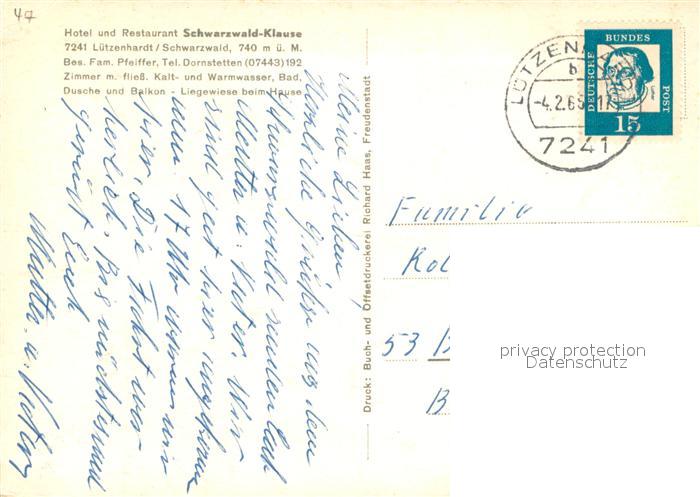 47
Hotel und Restaurant Schwarzwald-Klause
7241 Lützenhardt / Schwarzwald, 740 m ü. M.
Bes. Fam. Pfeiffer, Tel. Dornstetten (07443) 192
Zimmer m. fließ. Kalt- und Warmwasser, Bad,
Dusche und Balkon - Liegewiese beim Hause
Meine Lieben,
Herzliche Grüße aus dem
Schwarzwald senden Euch
Mutter u. Vater. Wir
sind gut hier angekommen
um 17 Uhr waren wir
hier. Die Fahrt war
herrlich. Bis nächstesmal
grüßt Euch
Mutter u. Vater
Druck: Buch- und Offsetdruckerei Richard Haas, Freudenstadt
b
-4.2.65
7241
DEUTSCHE BUNDES POST
15
Familie
53 B
B
privacy protection
Datenschutz